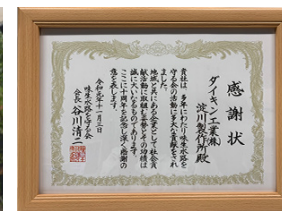 感謝状
ダイキン工業㈱
淀川製作所殿
貴社は、多年にわたり味生水路を
守る会の活動に多大な貢献をされ
ました。
地域と共にある企業として社会貢
献活動に取組む姿勢とその功績は
誠に大いなるものであります
ここに十周年を記念し深く感謝の
意を表します
令和元年十一月三日
味生水路を守る会
会長 谷川清二